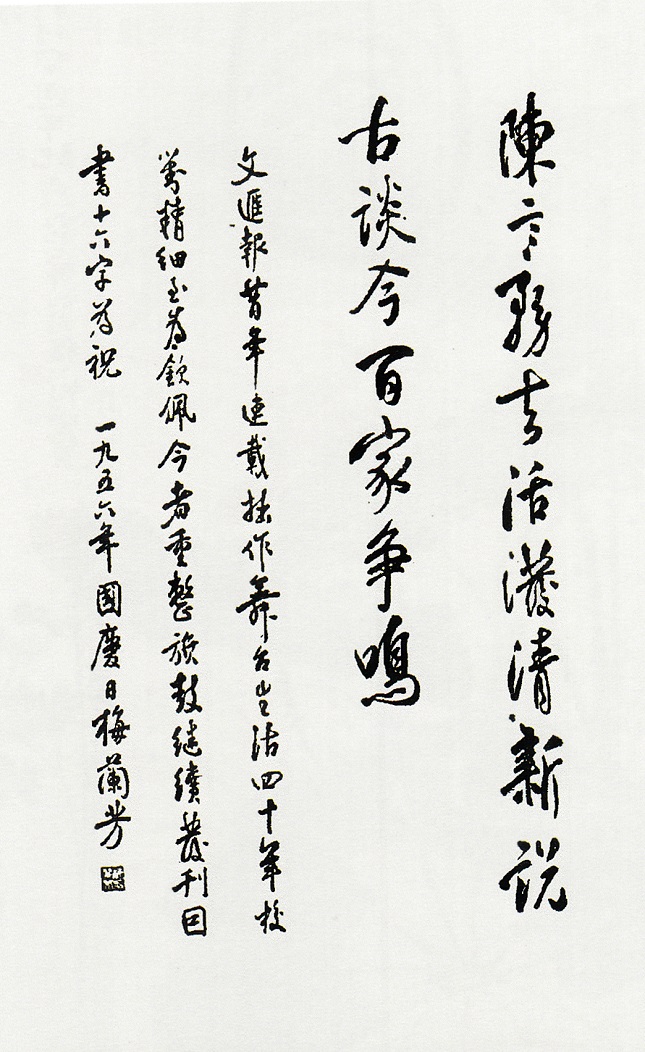 陳言務去活潑清新説
古談今百家争鳴
文滙報昔年連載拙作舞台生活四十年校
對精細至為欽佩今者重整旗鼓繼續發刊因
書十六字為祝 一九五六年國慶日梅蘭芳